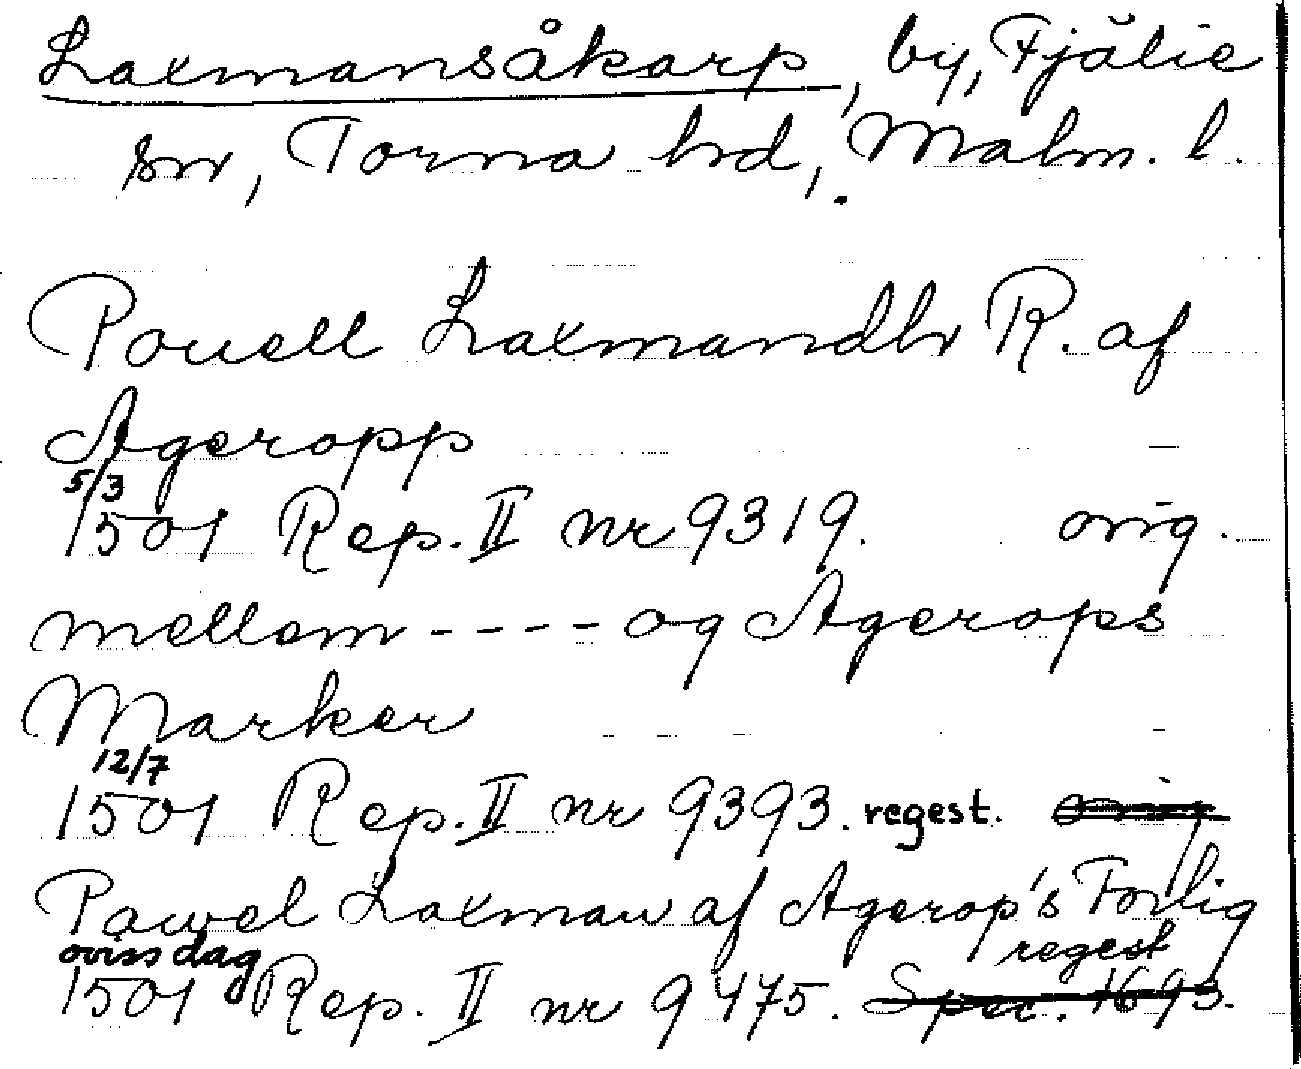 Laxmansåkarp, by, Fjälie
sn, Torna hd, Malm. l.
Pouell Laxmandhr R. af
Ageropp
5/3
1501 Rep. II nr 9319. orig.
mellem - - - - og Agerops
Marker
12/7
1501 Rep. II nr 9393. regest. orig
Pawel Laxman af Agerop's Forlig
oviss dag regest
1501 Rep. II nr 9475. Sper. 1693.